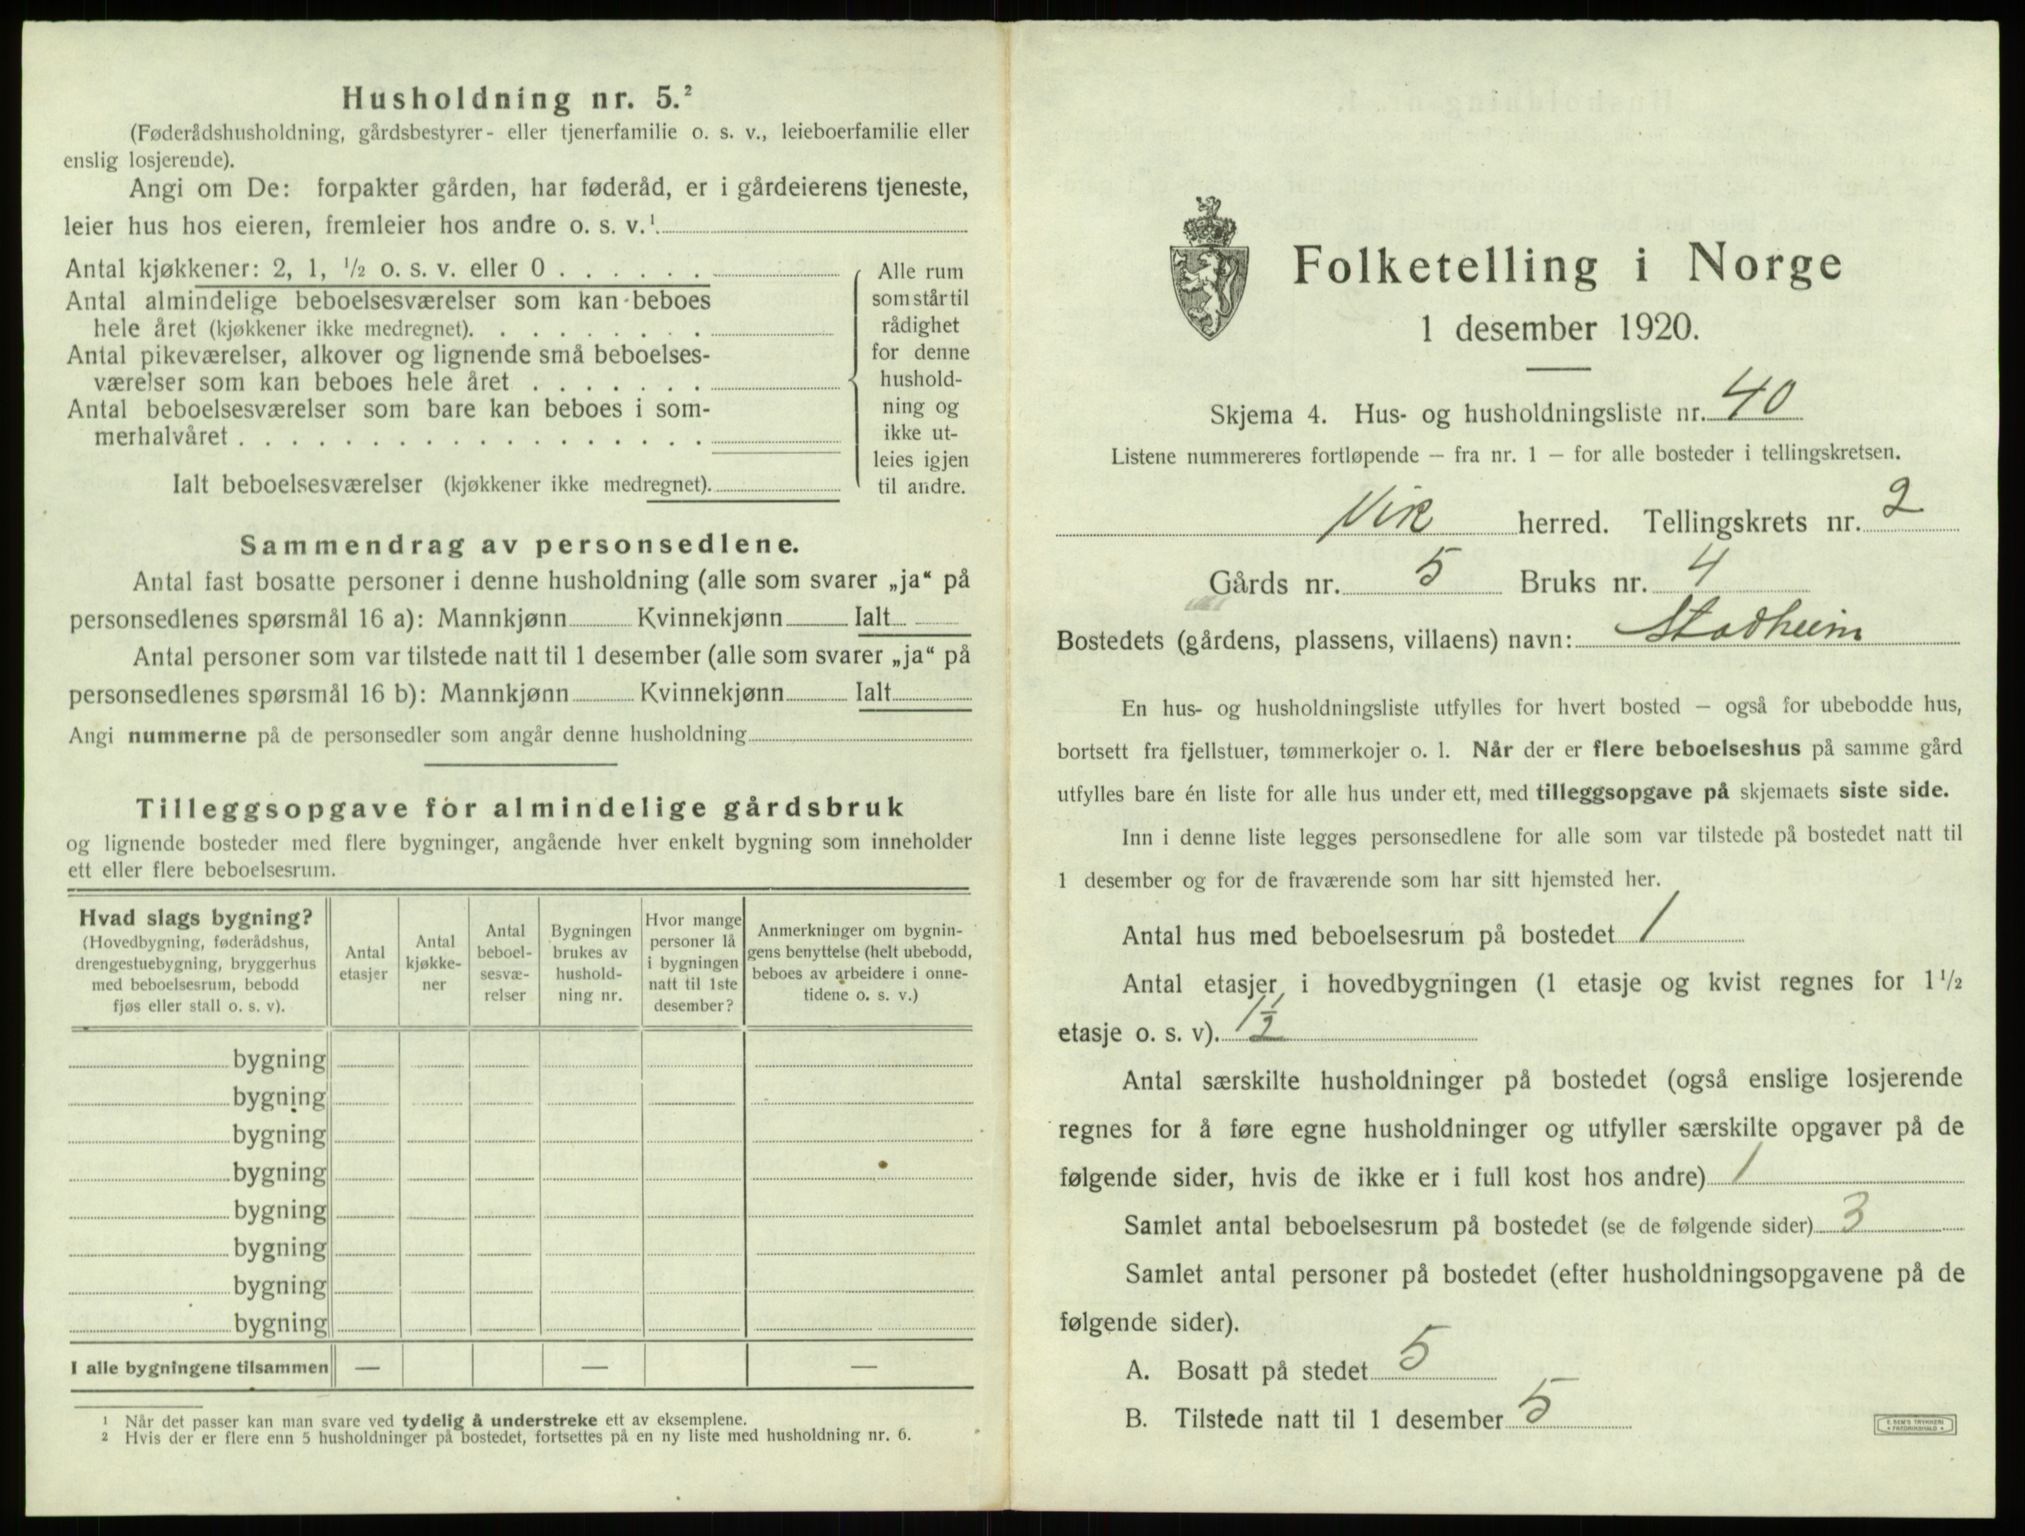 Husholdning nr. 5.²
(Føderådshusholdning, gårdsbestyrer- eller tjenerfamilie o. s. v., leieboerfamilie eller
enslig losjerende).
Angi om De: forpakter gården, har føderåd, er i gårdeierens tjeneste,
leier hus hos eieren, fremleier hos andre o. s. v.¹.
Antal kjøkkener: 2, 1, ½ o. s. v. eller 0 . . . . . .
Antal almindelige beboelsesværelser som kan beboes
hele året (kjøkkener ikke medregnet). . . . . . . . .
Antal pikeværelser, alkover og lignende små beboelses-
værelser som kan beboes hele året . . . . . . .
Antal beboelsesværelser som bare kan beboes i som-
merhalvåret . . . . . . . . . . . . . . . . . .
Ialt beboelsesværelser (kjøkkener ikke medregnet).
Alle rum
som står til
rådighet
for denne
hushold-
ning og
ikke ut-
leies igjen
til andre.
Sammendrag av personsedlene.
Antal fast bosatte personer i denne husholdning (alle som svarer „ja“ på
personsedlenes spørsmål 16 a): Mannkjønn Kvinnekjønn Ialt
Antal personer som var tilstede natt til 1 desember (alle som svarer „ja“ på
personsedlenes spørsmål 16 b): Mannkjønn Kvinnekjønn Ialt
Angi nummerne på de personsedler som angår denne husholdning
Tilleggsopgave for almindelige gårdsbruk
og lignende bosteder med flere bygninger, angående hver enkelt bygning som inneholder
ett eller flere beboelsesrum.
Hvad slags bygning?
(Hovedbygning, føderådshus,
drengestuebygning, bryggerhus
med beboelsesrum, bebodd
fjøs eller stall o. s. v).
Antal
etasjer
Antal
kjøkke-
ner
Antal
beboel-
sesvæ-
relser
Bygningen
brukes av
hushold-
ning nr.
Hvor mange
personer lå
i bygningen
natt til 1ste
desember?
Anmerkninger om bygnin-
gens benyttelse (helt ubebodd,
beboes av arbeidere i onne-
tidene o. s. v.)
bygning
bygning
bygning
bygning
bygning
bygning
bygning
bygning
I alle bygningene tilsammen — — —
¹ Når det passer kan man svare ved tydelig å understreke ett av eksemplene.
² Hvis der er flere enn 5 husholdninger på bostedet, fortsettes på en ny liste med husholdning nr. 6.
Folketelling i Norge
1 desember 1920.
Skjema 4. Hus- og husholdningsliste nr. 40
Listene nummereres fortløpende – fra nr. 1 – for alle bosteder i tellingskretsen.
Vik herred. Tellingskrets nr. 2
Gårds nr. 5 Bruks nr. 4
Bostedets (gårdens, plassens, villaens) navn: Stadheim
En hus- og husholdningsliste utfylles for hvert bosted – også for ubebodde hus,
bortsett fra fjellstuer, tømmerkojer o. l. Når der er flere beboelseshus på samme gård
utfylles bare én liste for alle hus under ett, med tilleggsopgave på skjemaets siste side.
Inn i denne liste legges personsedlene for alle som var tilstede på bostedet natt til
1 desember og for de fraværende som har sitt hjemsted her.
Antal hus med beboelsesrum på bostedet 1
Antal etasjer i hovedbygningen (1 etasje og kvist regnes for 1½
etasje o. s. v). 1½
Antal særskilte husholdninger på bostedet (også enslige losjerende
regnes for å føre egne husholdninger og utfyller særskilte opgaver på de
følgende sider, hvis de ikke er i full kost hos andre) 1
Samlet antal beboelsesrum på bostedet (se de følgende sider) 3
Samlet antal personer på bostedet (efter husholdningsopgavene på de
følgende sider).
A. Bosatt på stedet 5
B. Tilstede natt til 1 desember 5